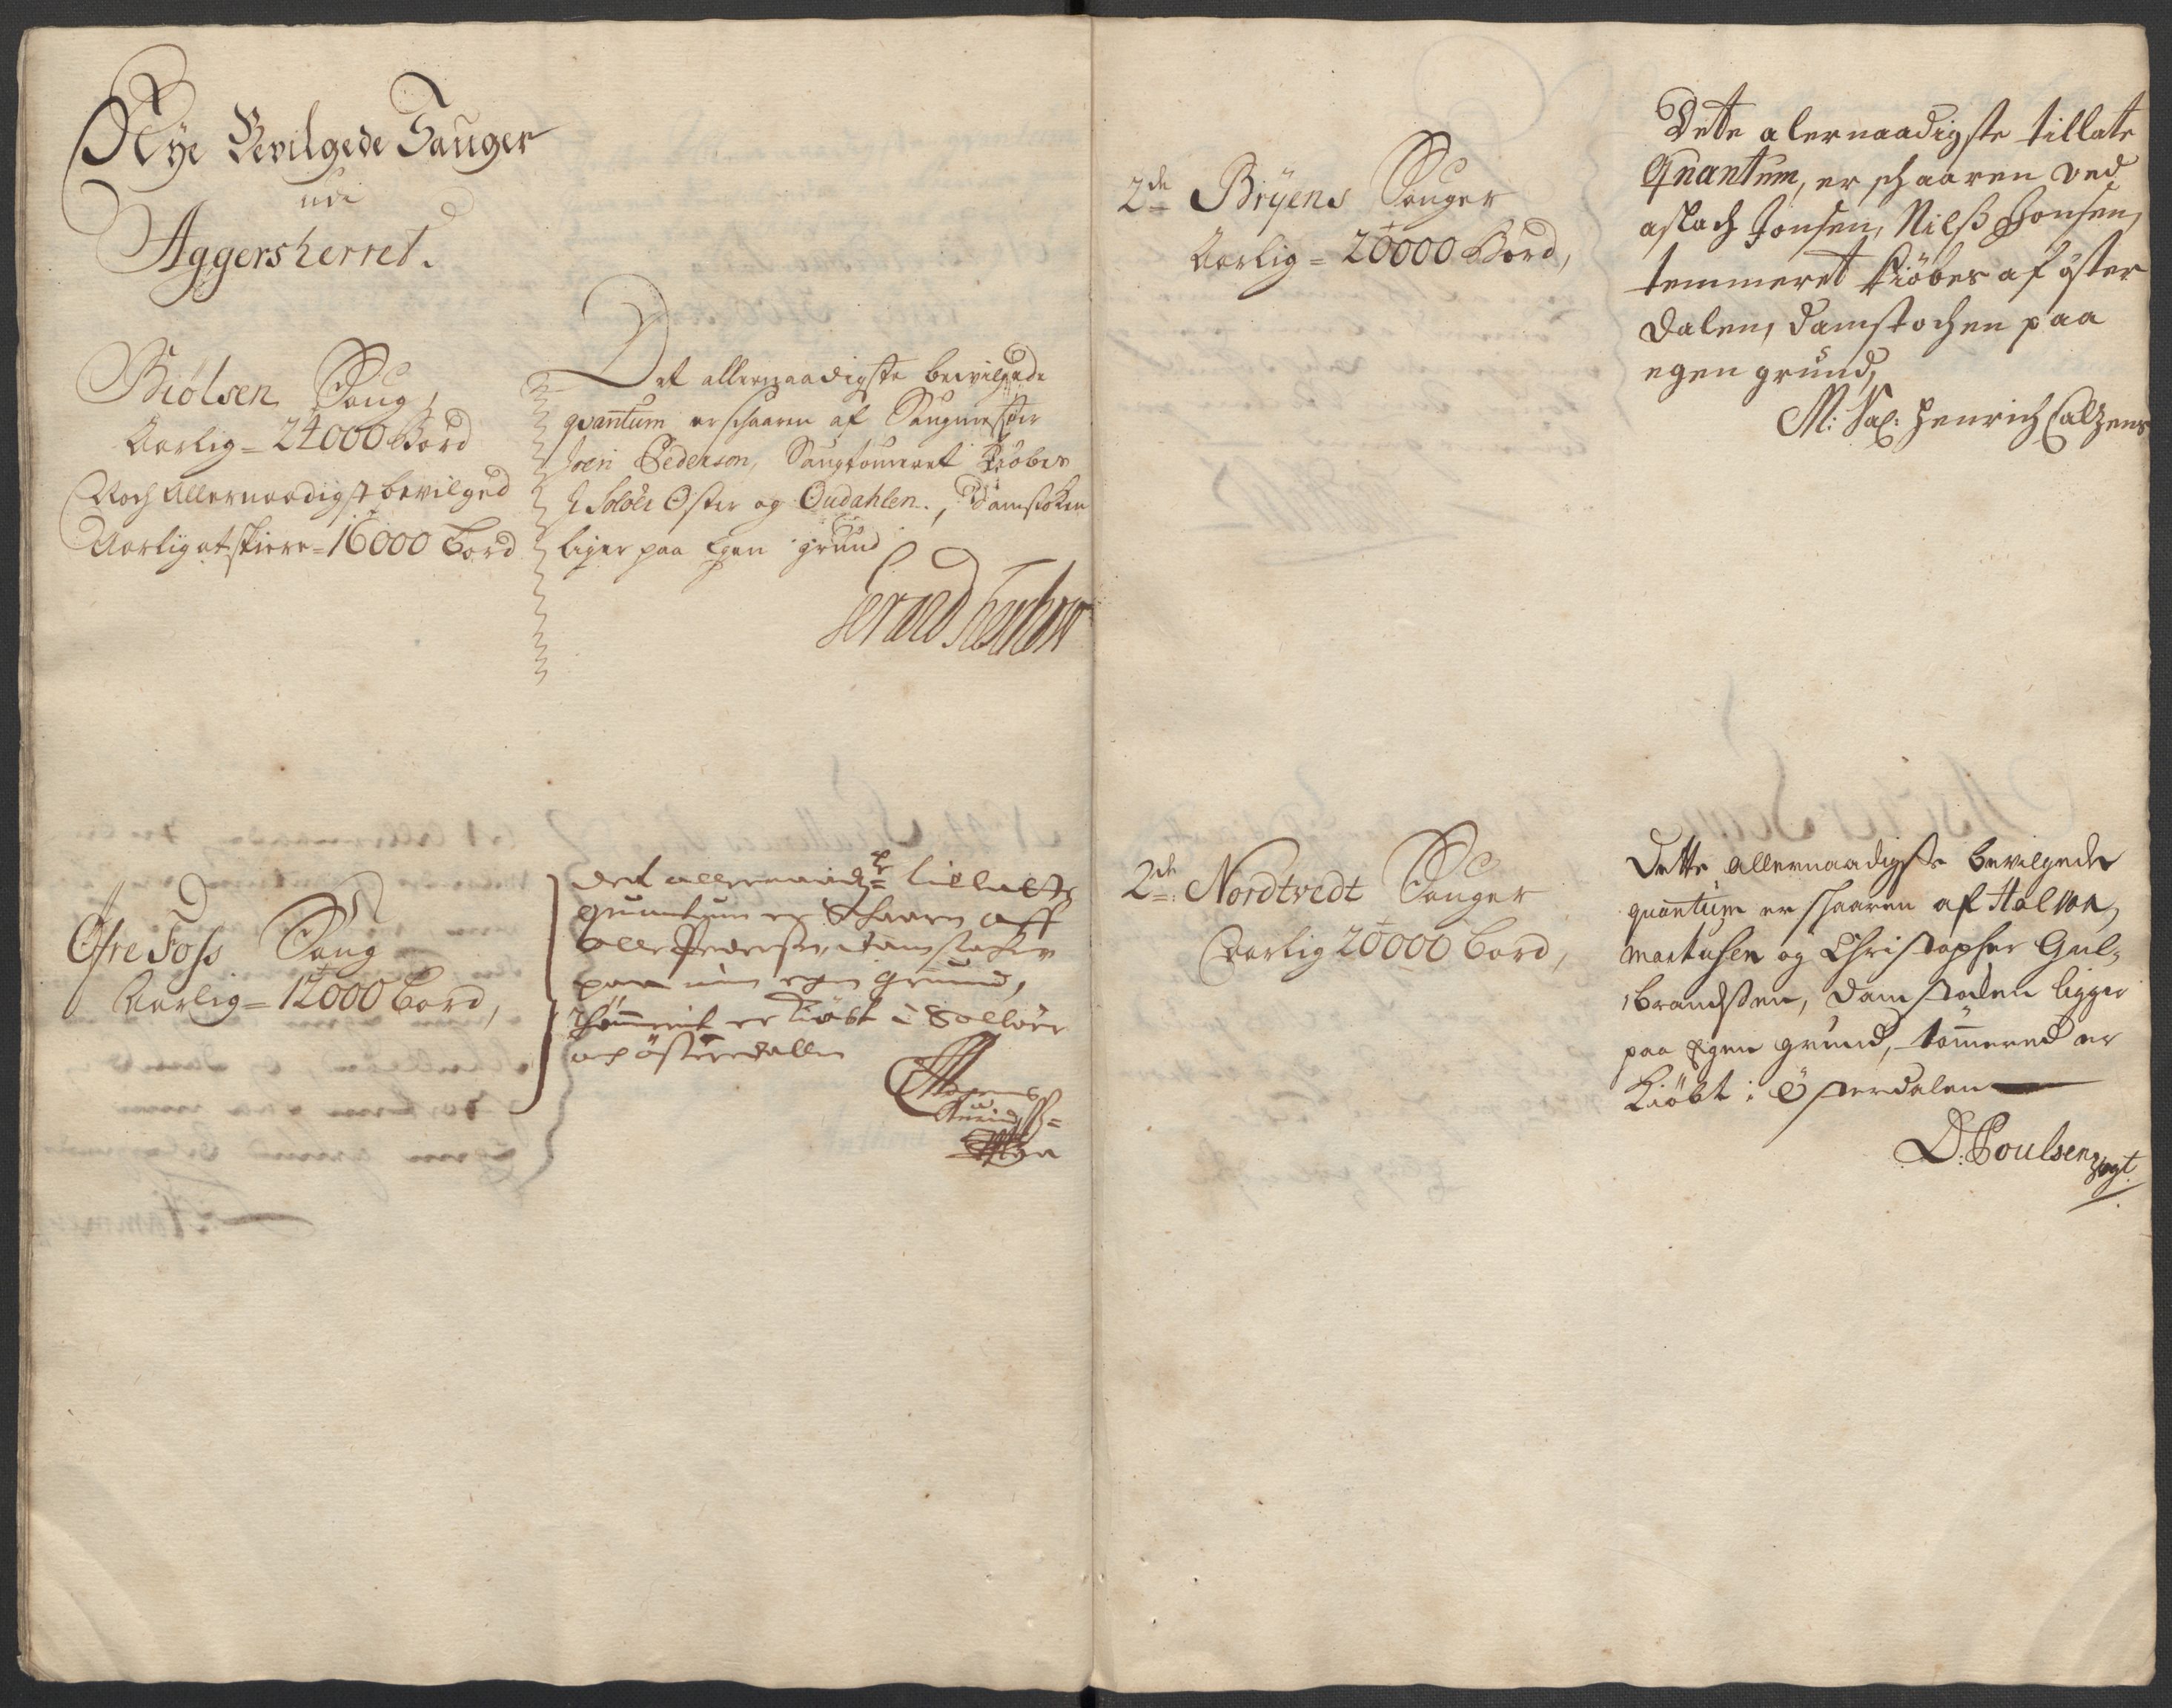 Nye Bevilgede Sauger
udi
Aggersherret.
Biølsen Saug,
Aarlig = 24000 Bord
Noch Allernaadigst bevilged
Aarlig at skiere = 16000 Bord
Det allernaadigste bewilgede
qvantum er schaaren af Saugmester
Joen Pederson, Saugtømeret kiøbes
I Soløer Øster og Oudahlen., Damstoken
liger paa Egen grund
Øfre Foss Saug
Aarlig = 12000 Bord,
det allernaadigste tillatte
quantum er Schaaren aff
Olle Pedersen, damstocken
paa min egen grund,
Tømmerit er kiøbt i Solløer
och østerdallen
2de Bryens Sauger
Aarlig = 20000 Bord,
Dete alernaadigste tillate
Qnantum, er schaaren ved
aslach Jonsen, Nilss Jonsen,
temmeret kiøbes af øster
dalen, damstochen paa
egen grund,
M: Sal: Henrich
2de: Nordtvedt Sauger
Aarlig 20000 bord,
Dette Allernaadigste bevilgede
quantum er schaaren af Halvor
Martusen og Christopher Gul-
brandsten, damstoken ligger
paa Egen grund, tømmered er
kiøbt i Østerdalen
D. Poulsen Vogt.